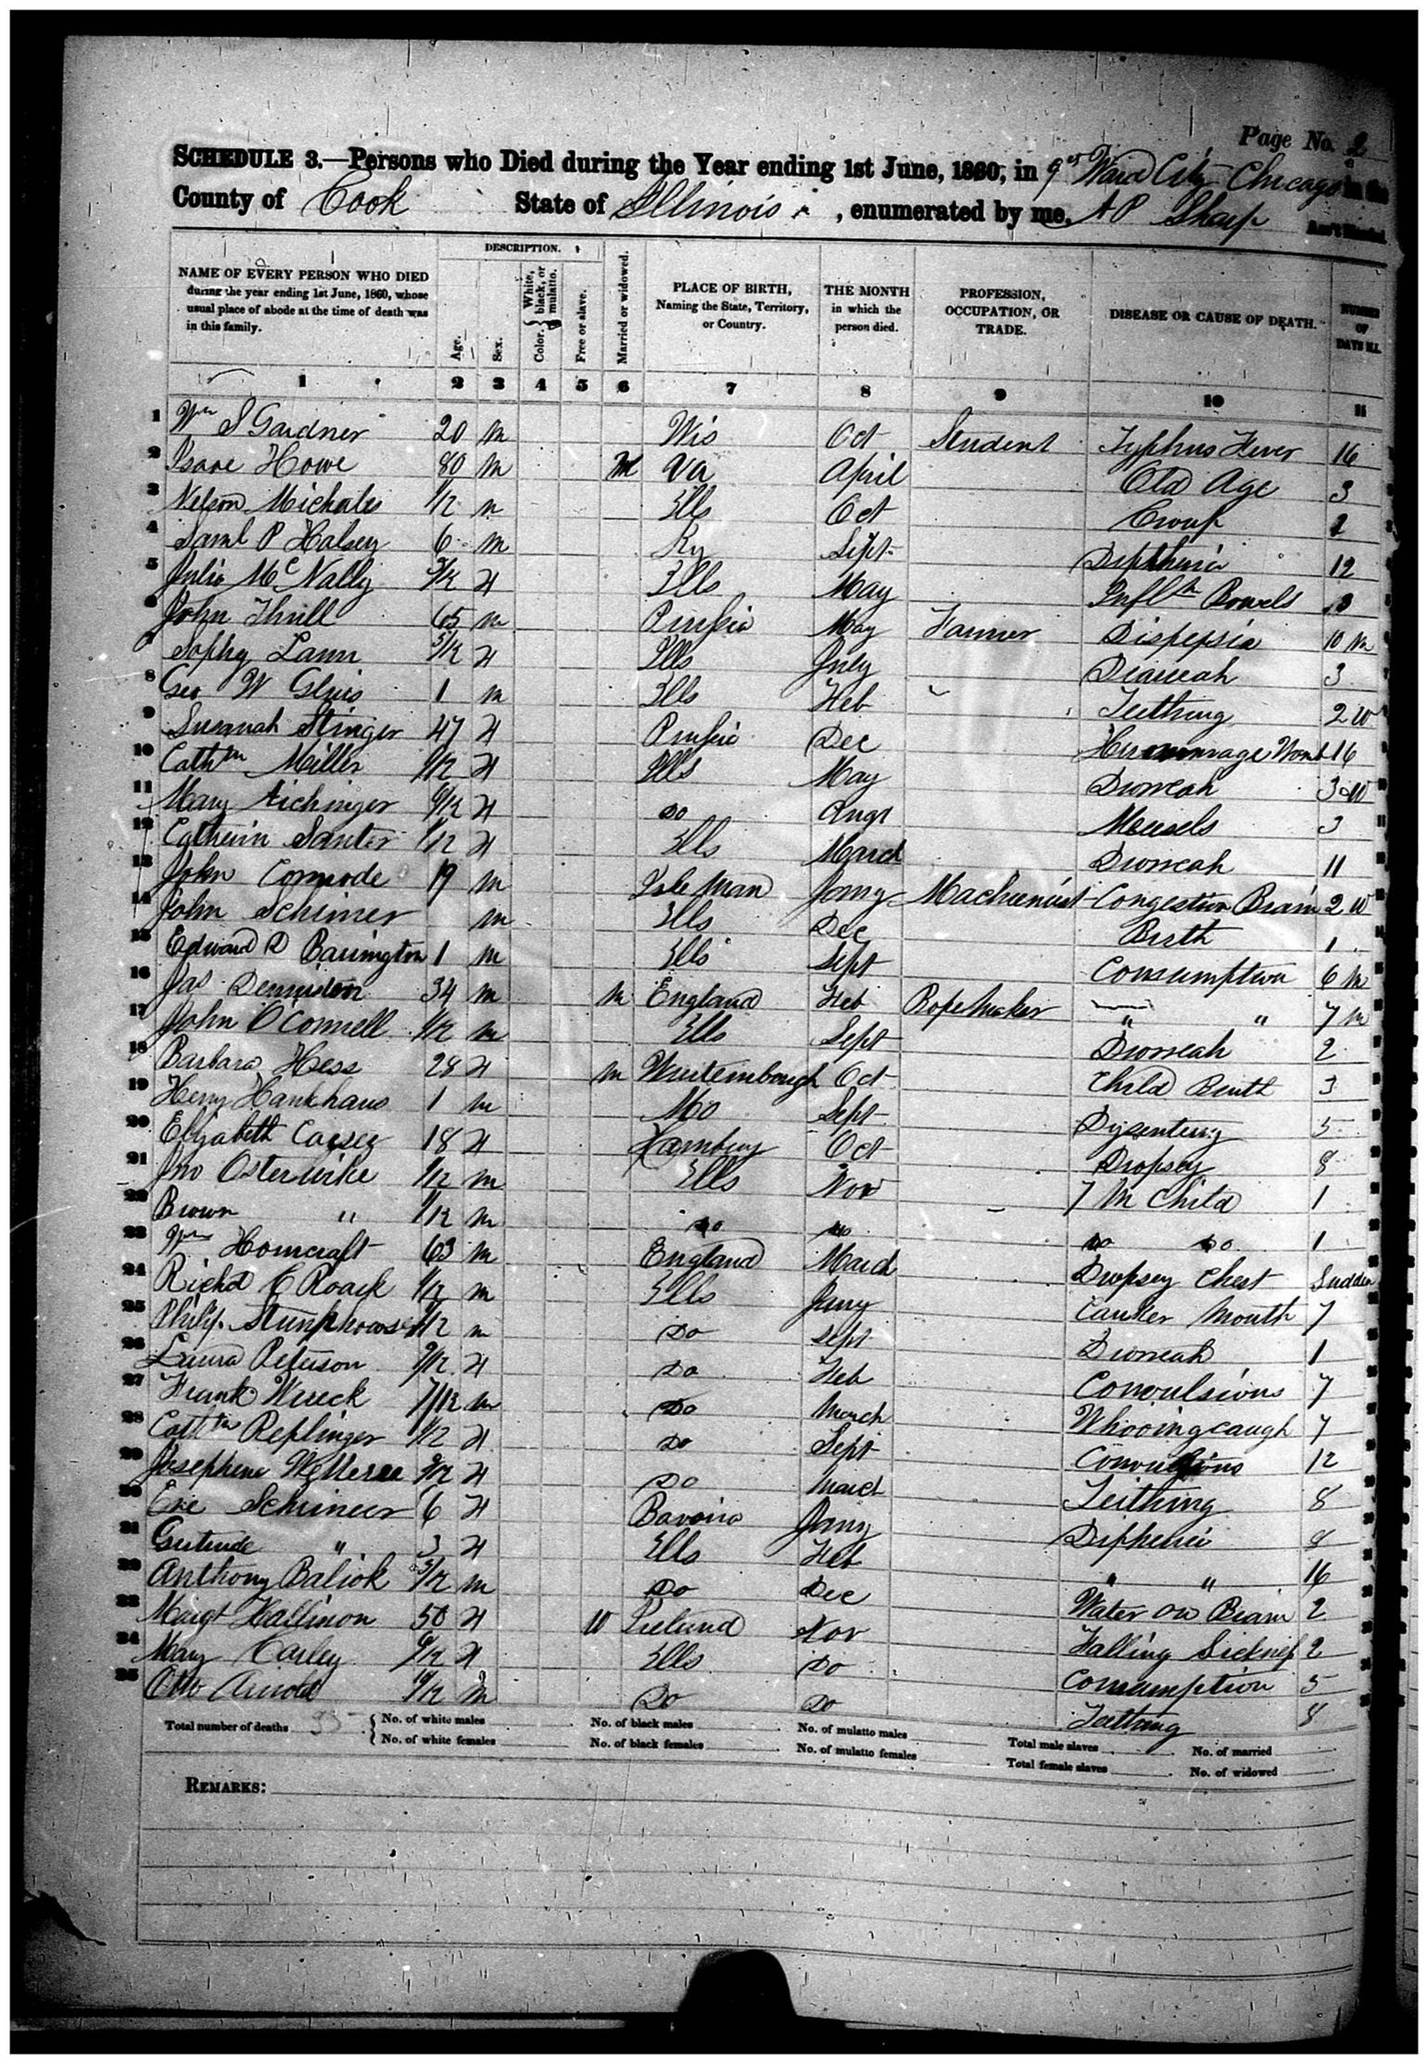 Page No. 2
SCHEDULE 3.—Persons who Died during the Year ending 1st June, 1860, in 9th Ward City Chicago in the
County of Cook State of Illinois, enumerated by me, A P Sharp Ass't Marshal.
DESCRIPTION.
NAME OF EVERY PERSON WHO DIED during the year ending 1st June, 1860, whose usual place of abode at the time of death was in this family.
Age.
Sex.
Color. { White, black, or mulatto.
Free or slave.
Married or widowed.
PLACE OF BIRTH, Naming the State, Territory, or Country.
THE MONTH in which the person died.
PROFESSION, OCCUPATION, OR TRADE.
DISEASE OR CAUSE OF DEATH.
NUMBER OF DAYS ILL
1 2 3 4 5 6 7 8 9 10 11
1 Wm S Gardner 20 m Wis Oct Student Typhus Fever 16
2 Isaac Howe 80 m M Va April Old Age 3
3 Nelson 1/12 m Ills Oct Croup 2
4 Saml P Halsey 6 m Ky Sept Diphtheria 12
5 Julia McNally /12 F Ills May Infltn Bowels 3
6 John Thrill 65 m Prussia May Farmer Dispepsia 10 m
7 Sophy Lann 5/12 F Ills July Diarreah 3
8 Geo W 1 m Ills Feb Teething 2 W
9 Susanah Stinger 47 F Prussia Dec Hummorage Womb 16
10 Cathrn Miller /12 F Ills May Diorreah 3 W
11 Mary Aichinger /12 F Do Augt Meesels 3
12 Catherin Santer 1/12 F Ills March Diorreah 11
13 John Cormode 19 m Isle Man Jany Machienist Congestion Brain 2 W
14 John Schriner m Ills Dec Birth 1
15 Edward D Barrington 1 m Ills Sept Consumption 6 m
16 Jas Denniston 34 m m England Feb RopeMaker " " 7 m
17 John O'Connell 1/12 m Ills Sept Diorreah 2
18 Barbara Hess 28 F m Wurtembough Oct Child Birth 3
19 Henry Hankhaus 1 m Mo Sept Dysentery 5
20 Elizabeth 18 F Hamburg Oct Dropsey 8
21 Jno Osterwike 1/12 m Ills Nov 7 M Child 1
22 Brown " 1/12 m Do Do Do Do 1
23 Wm Horncraft 63 m England March Dropsey Chest Sudden
24 Richd C Roack 1/12 m Ills Jany Canker Mouth 7
25 Philip 1/12 m Do Sept Diorreah 1
26 Laura Peterson 9/12 F Do Feb Convulsions 7
27 Frank Wereck 7/12 m Do March Whooingcaugh 7
28 Cathrn Replinger 1/12 F Do Sept Convulsions 12
29 Josephine /12 F Do March Teithing 8
30 Eve Schrineer 6 F Bavaria Jany Diphtheria 8
31 Gertrude " 3 F Ills Feb " " 16
32 Anthony Baliok 3/12 m Do Dec Water on Brain 2
33 Margt Hallinon 50 F W Ireland Nov Falling Sickness 2
34 Mary Carley 9/12 F Ills Do Consumption 5
35 Otto Arnold /12 m Do Do Teething 8
Total number of deaths 35
{ No. of white males
{ No. of white females
No. of black males
No. of black females
No. of mulatto males
No. of mulatto females
Total male slaves
Total female slaves
No. of married
No. of widowed
REMARKS: